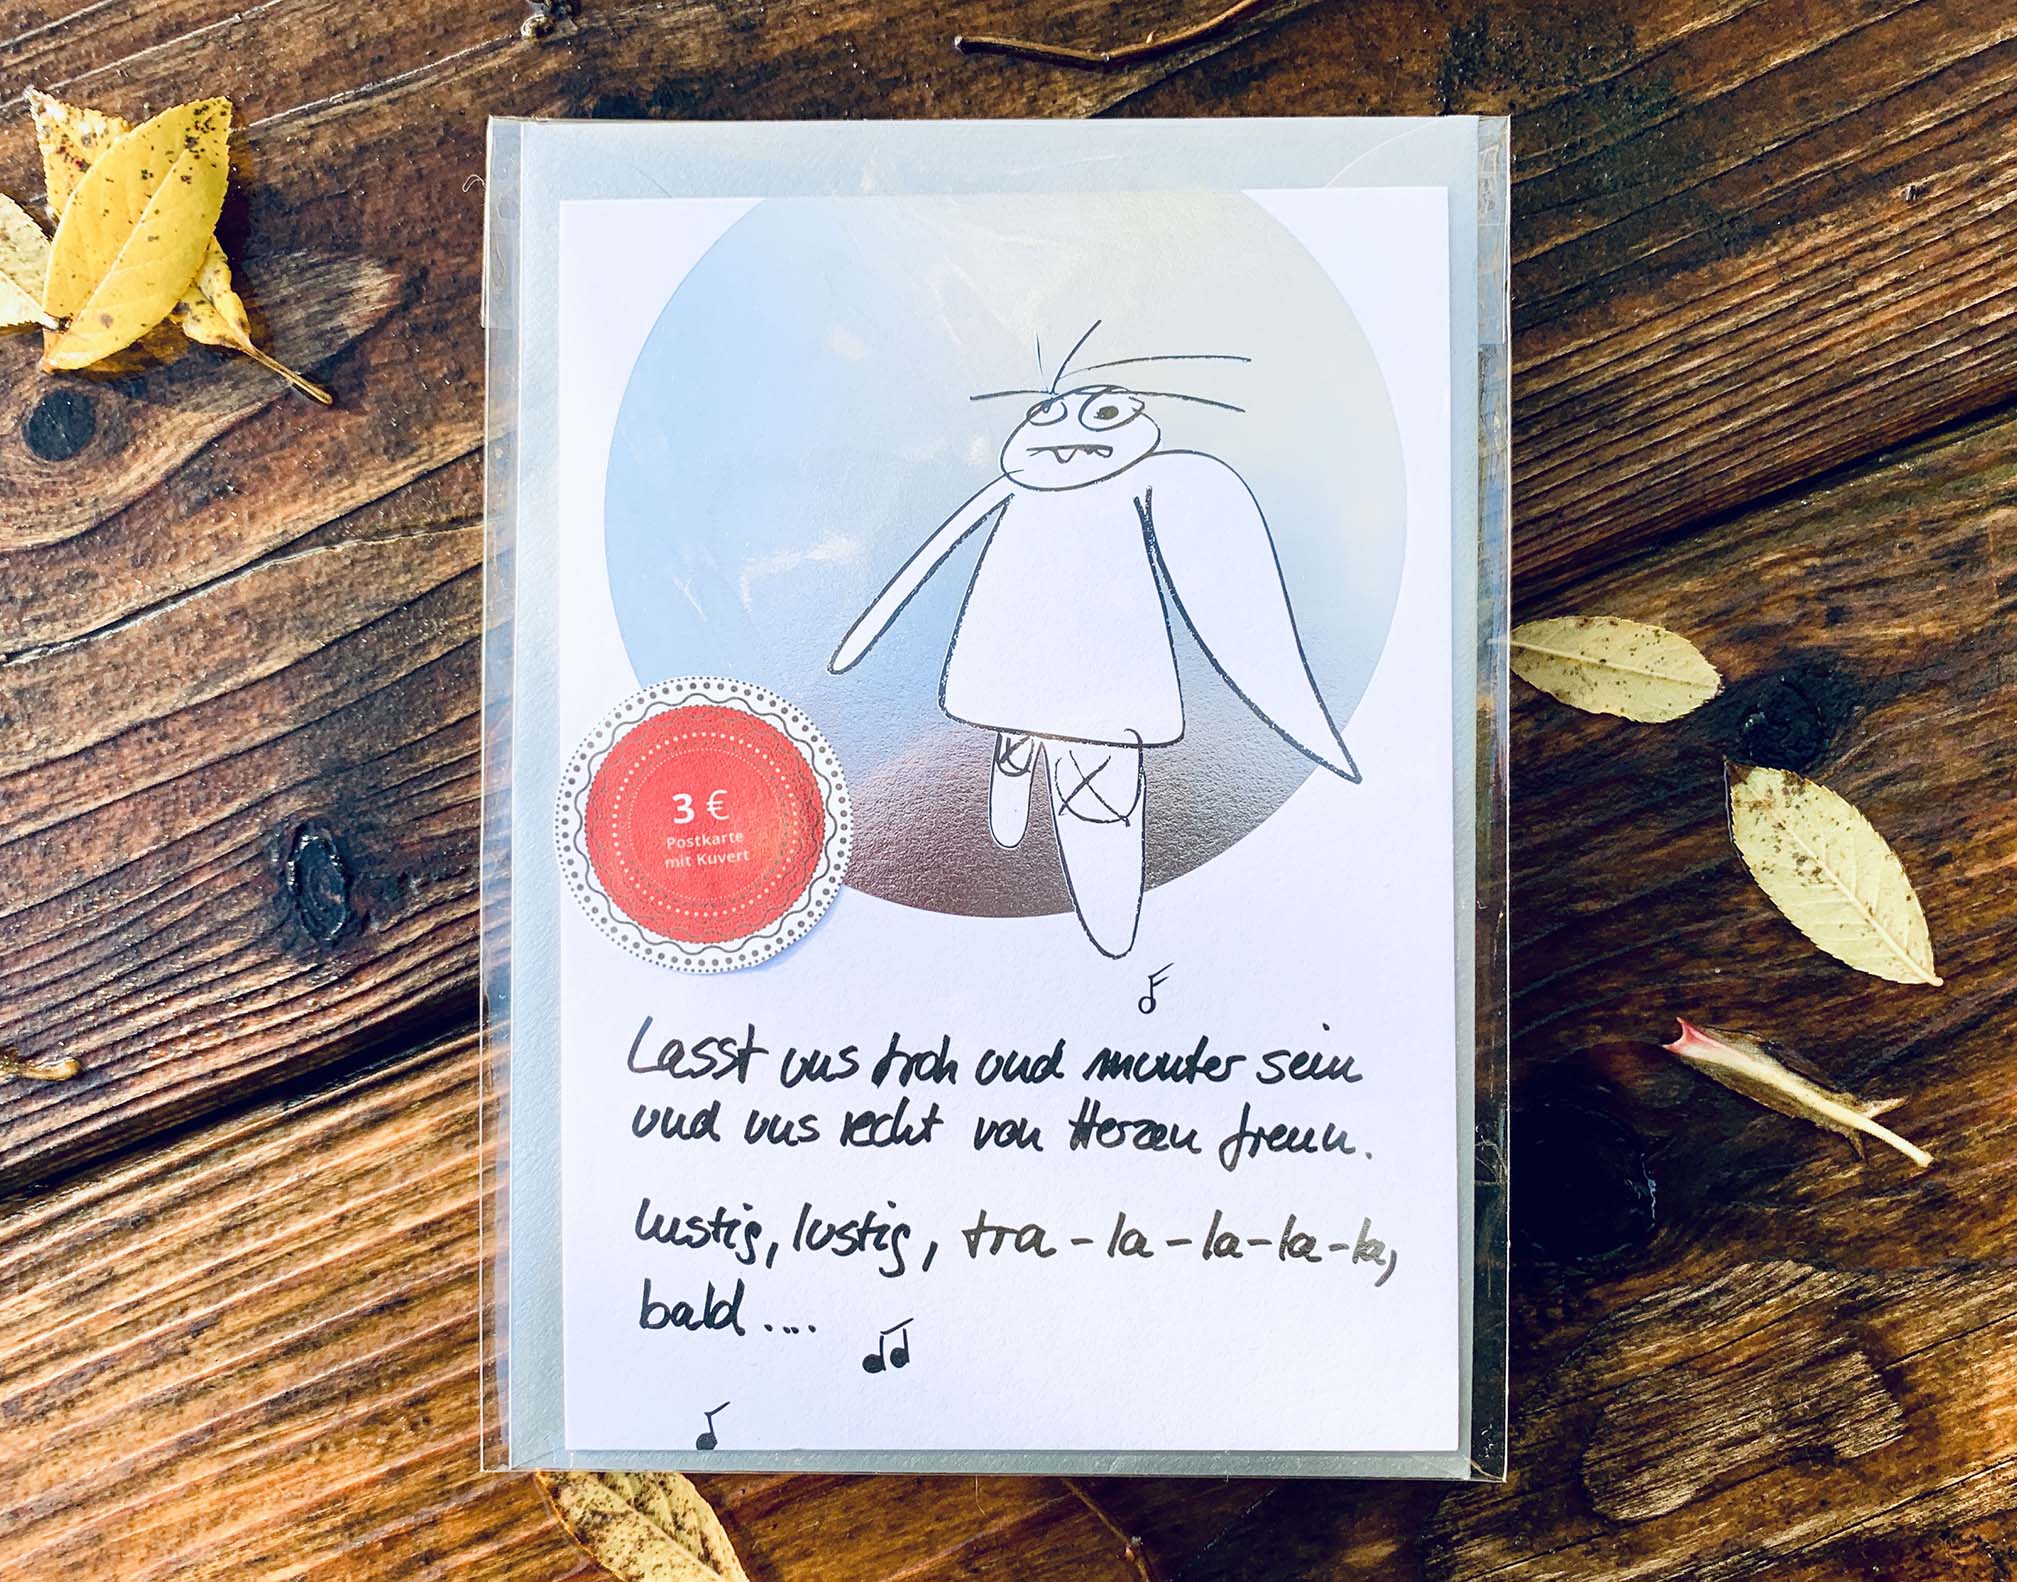 3 €
Postkarte
mit Kuvert
Lasst uns froh und munter sein
und uns recht von Herzen freun.
Lustig, lustig, tra-la-la-la-la,
bald....